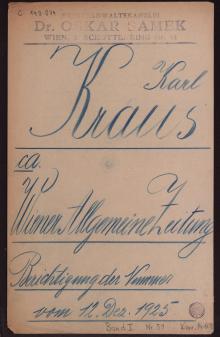 RECHTSANWALTSKANZLEI
Dr. OSKAR SAMEK
WIEN, I. SCHOTTENRING Nr. 14
Karl
Kraus
ca.
Wiener Allgemeine Zeitung
Berichtigung der Nummer
vom 12. Dez. 1925
Band I Nr. 51